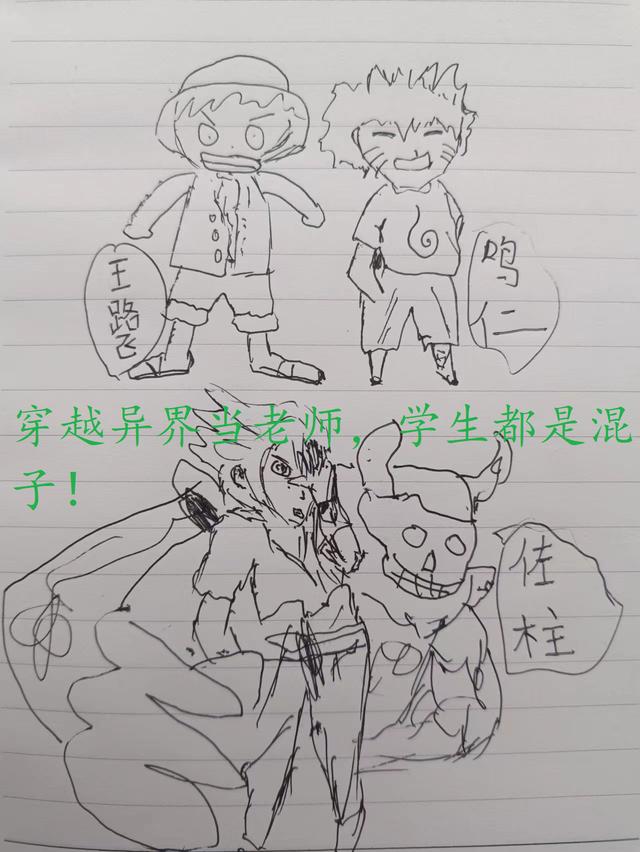 王路飞
鸣仁
穿越异界当老师，学生都是混
子！
佐柱